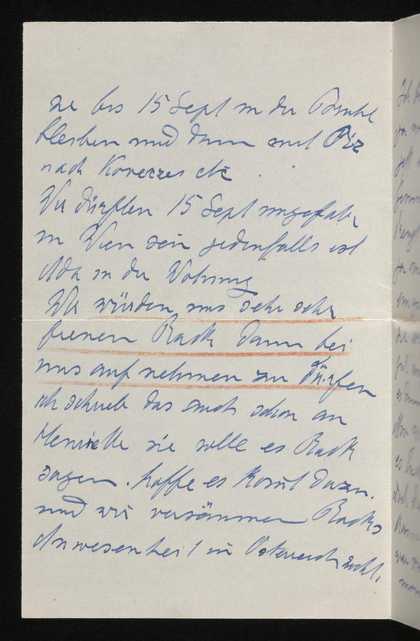 sie bis 15 Sept in der
bleiben und dann mit
nach etz.
Wir dürften 15 Sept ungefähr
in Wien sein jedenfalls ist
Ada in der Wohnung
Wir würden uns sehr sehr
freuen Back dann bei
uns aufnehmen zu dürfen
ich schrieb das auch schon an
sie solle es Back
sagen. hoffe es komt dazu.
und wir versäumen Backs
Anwesenheit in Österreich nicht.